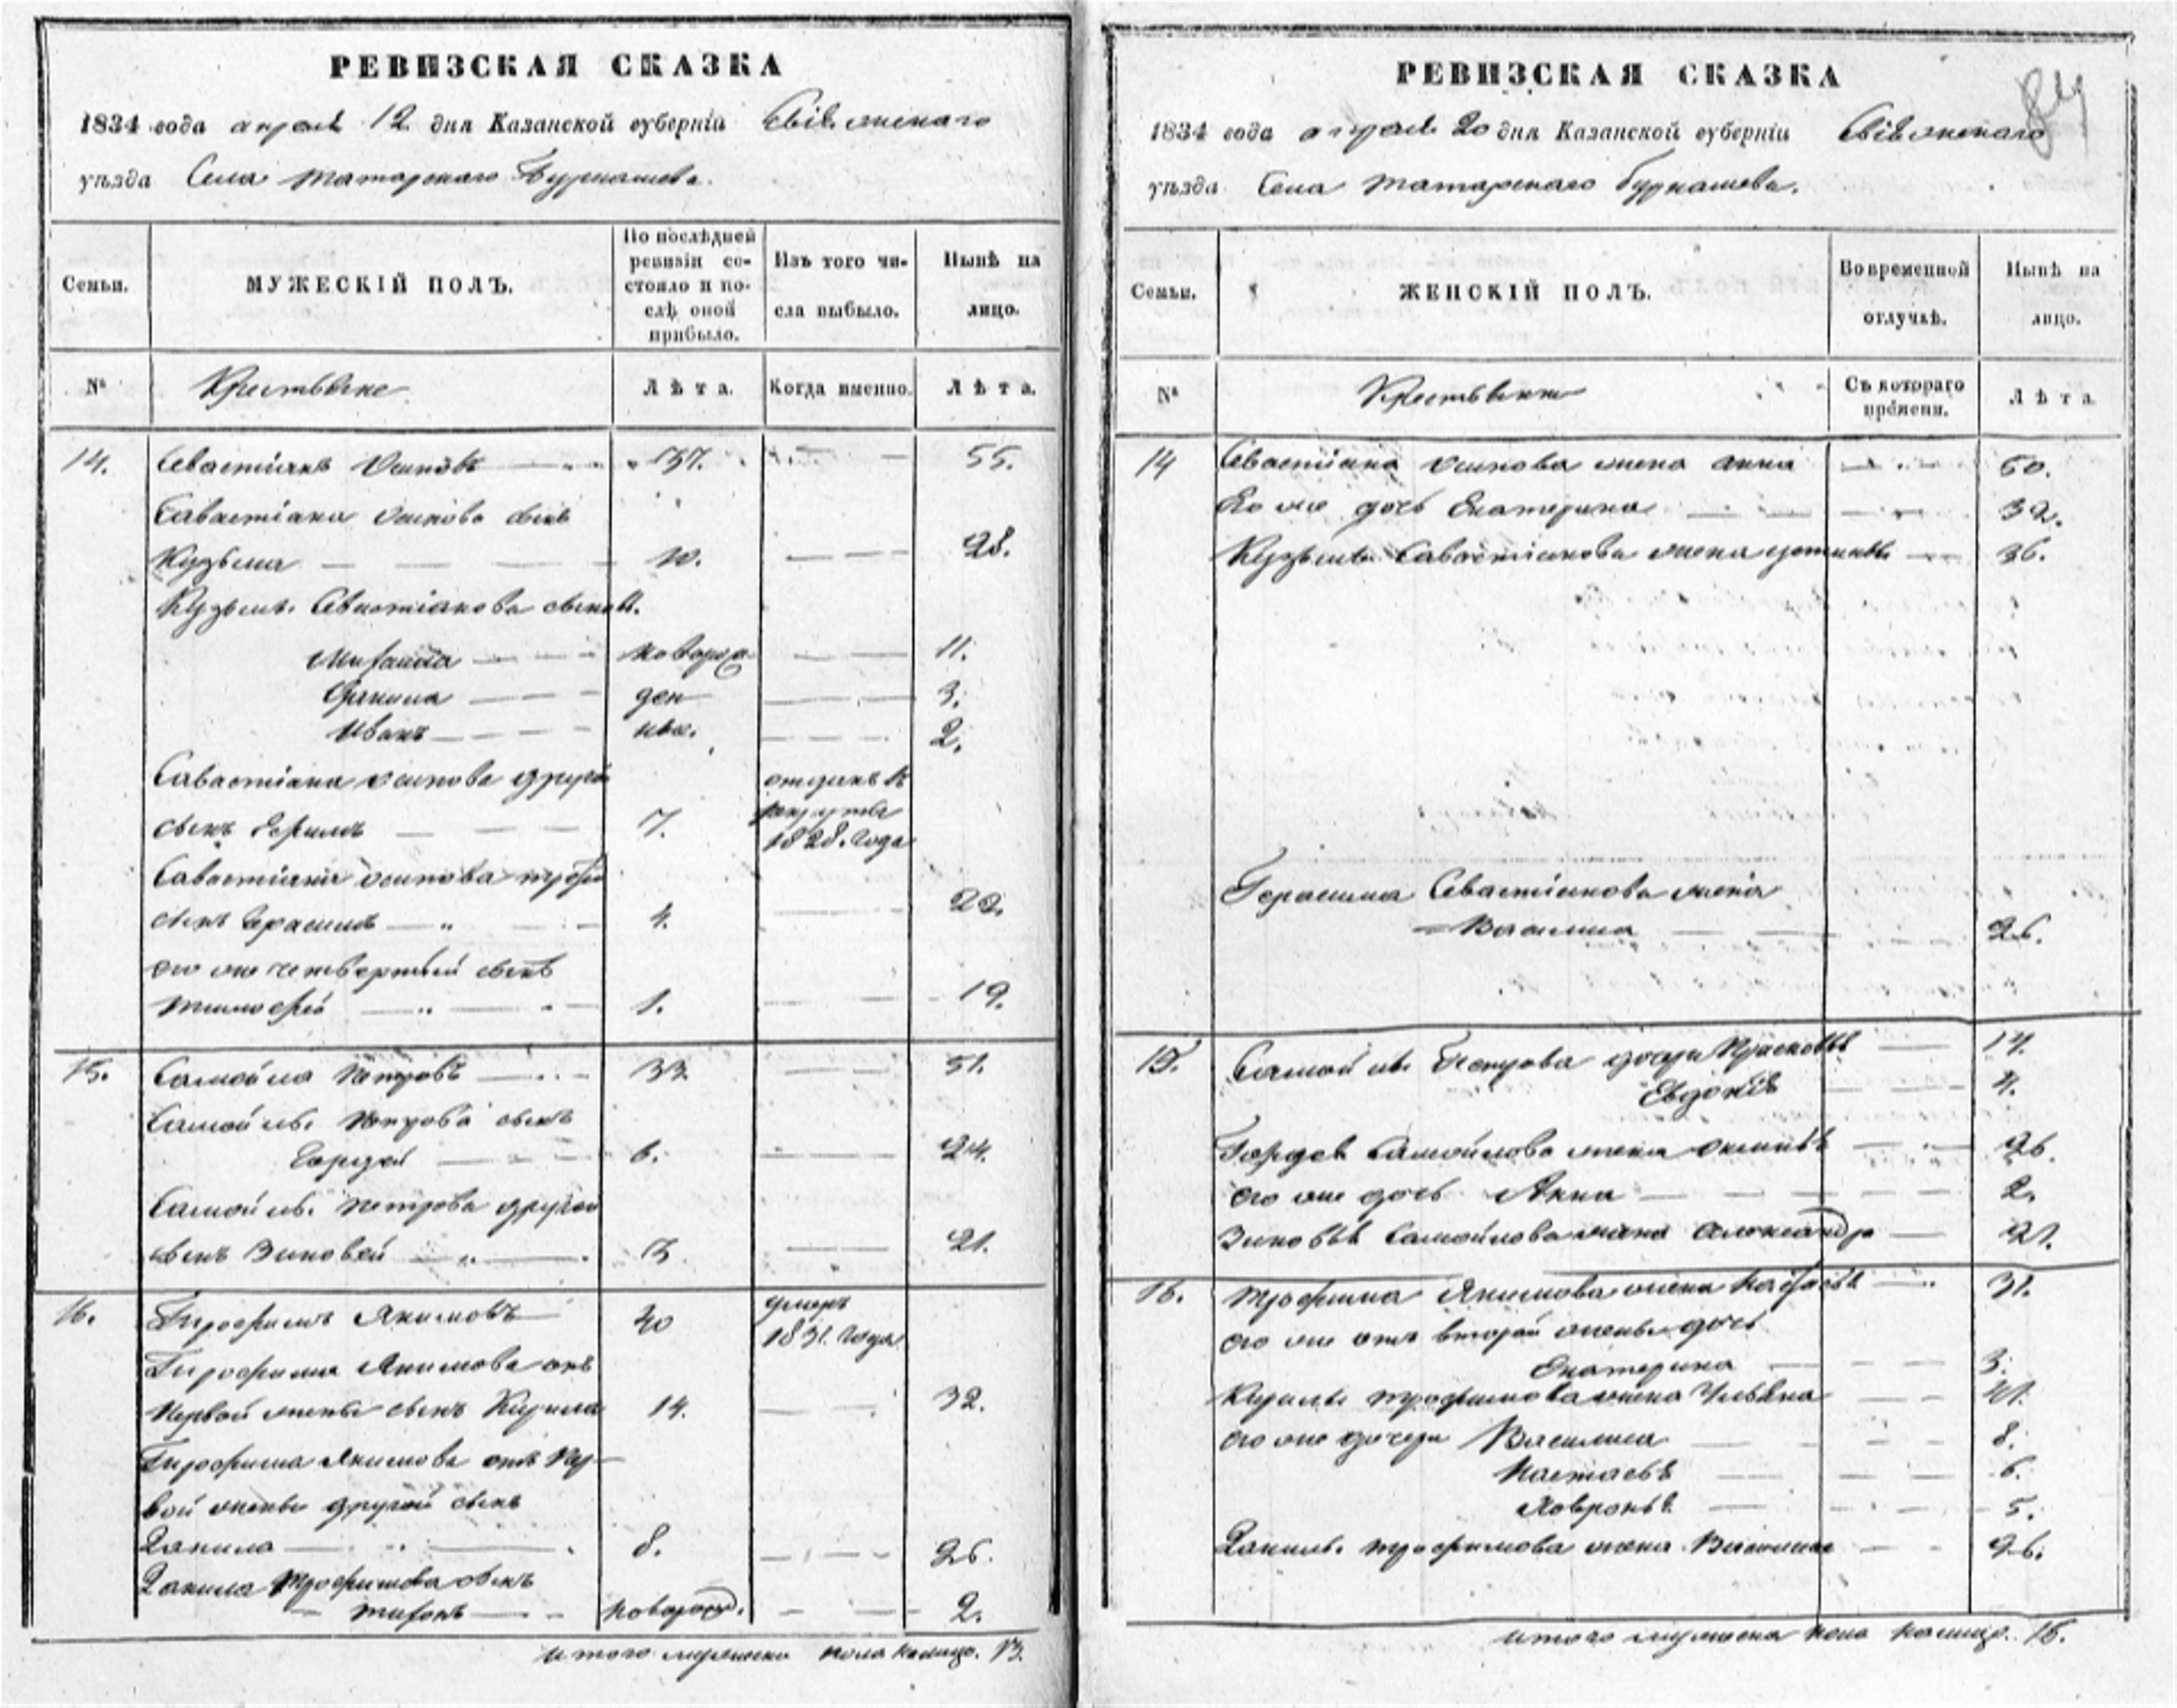 РЕВИЗСКАЯ СКАЗКА
1834 года апреля 12 дня Казанской губерніи Свіяжскаго
уѣзда Села Татарскаго Бурнашева.
Семьи.
МУЖЕСКІЙ ПОЛЪ.
По послѣдней ревизіи со-
стояло и по-
слѣ оной
прибыло.
Изъ того чи-
сла выбыло.
Нынѣ на
лицо.
№
Крестьяне
Лѣта.
Когда именно.
Лѣта.
14. Севастіянъ Осиповъ 37. 55.
Савастіана Осипова сынъ
Кузьма 10. 28.
Кузьмы Севастіанова сыновья.
Михаила новорож 11.
Данила ден 3.
Иванъ ные. 2.
Савастіана Осипова другой отданъ в
сынъ Ефимъ 7. рекруты
1828. года
Савастіана Осипова третій
сынъ Герасимъ 4. 22.
его же четвертый сынъ
Тимофей 1. 19.
15. Самойла Петровъ 33. 51.
Самойлы Петрова сынъ
Гордей 6. 24.
Самойлы Петрова другой
сынъ Зиновей 3. 21.
16. Трофимъ Якимовъ 40 умеръ
1831. года
Трофима Якимова отъ
первой жены сынъ Кирила 14. 32.
Трофима Якимова отъ пер-
вой жены другой сынъ
Данила 8. 26.
Данила Трофимова сынъ
Тихонъ новорожд. 2.
Итого мужеска пола налицо. 13.
РЕВИЗСКАЯ СКАЗКА
84
1834 года апреля 20 дня Казанской губерніи Свіяжскаго
уѣзда Села Татарскаго Бурнашева.
Семьи.
ЖЕНСКІЙ ПОЛЪ.
Во временной
отлучкѣ.
Нынѣ на
лицо.
№
Крестьяне
Съ котораго
времени.
Лѣта
14 Севастіана Осипова жена Анна 50.
Его же дочь Екатерина 32.
Кузьмы Савастіанова жена Устинья 36.
Герасима Севастіанова жена
Василиса 26.
15. Самойлы Петрова дочери Прасковья 14.
Евдокія 4.
Гордея Самойлова жена 26.
его же дочь Анна 2.
Зиновья Самойлова жена Александра 21.
16. Трофима Якимова жена 31.
его же отъ второй жены дочь
Екатерина 3.
Кирилы Трофимова жена Ульяна 41.
его же дочери Василиса 8.
Настасья 6.
Хавронья 5.
Данилы Трофимова жена Василиса 26.
Итого женска пола налицо. 16.